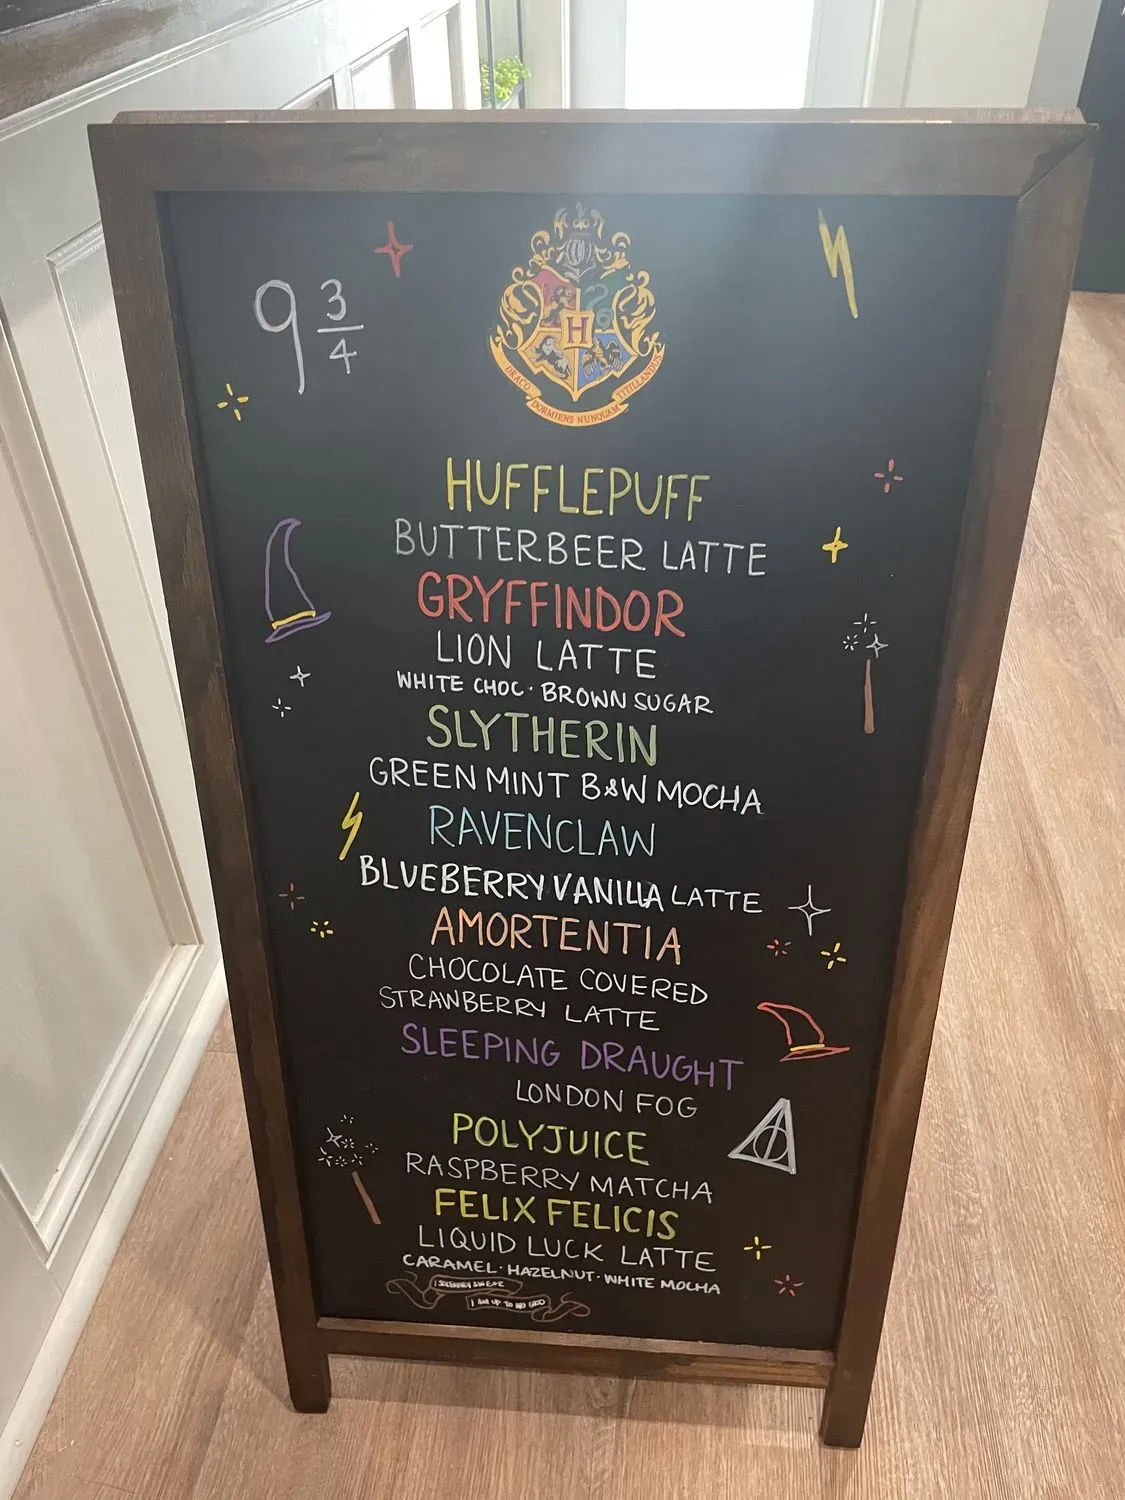 9 3/4
H
DRACO DORMIENS NUNQUAM TITILLANDUS
HUFFLEPUFF
BUTTERBEER LATTE
GRYFFINDOR
LION LATTE
WHITE CHOC · BROWN SUGAR
SLYTHERIN
GREEN MINT B&W MOCHA
RAVENCLAW
BLUEBERRY VANILLA LATTE
AMORTENTIA
CHOCOLATE COVERED
STRAWBERRY LATTE
SLEEPING DRAUGHT
LONDON FOG
POLYJUICE
RASPBERRY MATCHA
FELIX FELICIS
LIQUID LUCK LATTE
CARAMEL · HAZELNUT · WHITE MOCHA
I SWEAR
I AM UP TO NO GOOD